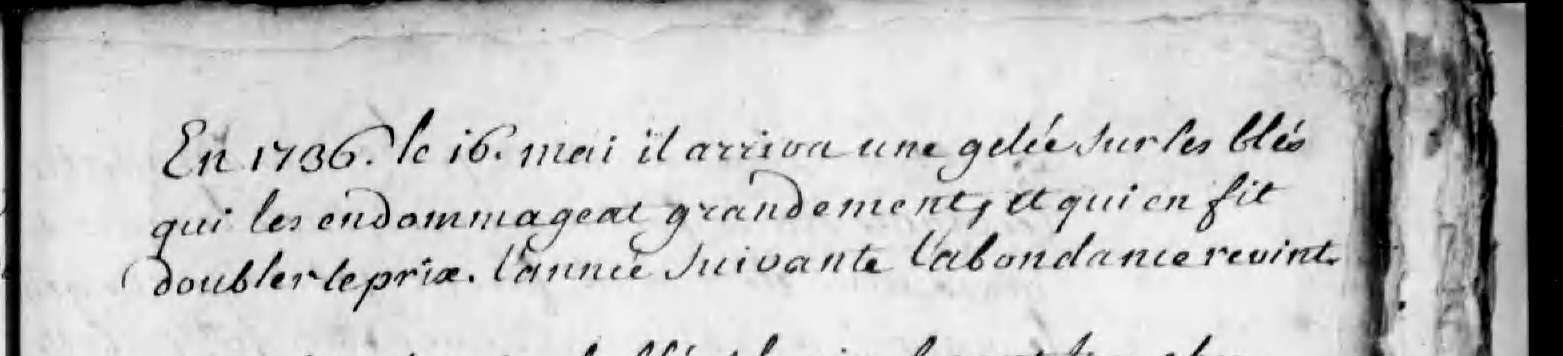 En 1736. le 16. mai il arriva une gelée sur les blés
qui les endommageat grandement, et qui en fit
doubler le prix. l'année suivante l'abondance revint.